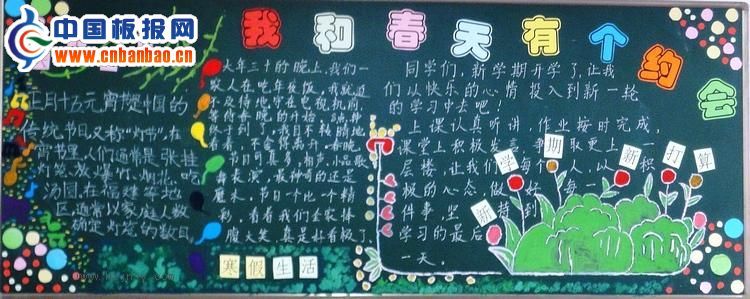 中国板报网
www.cnbanbao.cn
我和春天有个约会
正月十五元宵节是中国的
传统节日又称"灯节",在
宵节里,人们通常是张挂
灯笼、放爆灯、烟花、吃
汤圆,在福建等地
区,通常以家庭人数
确定灯笼的数目
大年三十的晚上,我们一
家人在吃年夜饭,我就迫
不及待地守在电视机前
等待春晚的开始,8点钟
终于到了,我目不转睛地
看,不舍得离开,春晚
节目可真多,相声、小品、歌
舞表演,最神奇的还是
魔术,节目一个比一个精
彩,看着我们全家捧
腹大笑,真是好看极了
寒假生活
同学们,新学期开学了,让我
们以快乐的心情投入到新一轮
的学习中去吧!
上课认真听讲,作业按时完成,
课堂上积极发言,争取更上一
层楼,让我们每个人,以积
极的心态,做好每一
件事,坚持到
学习的最后
一天。
新学期新打算